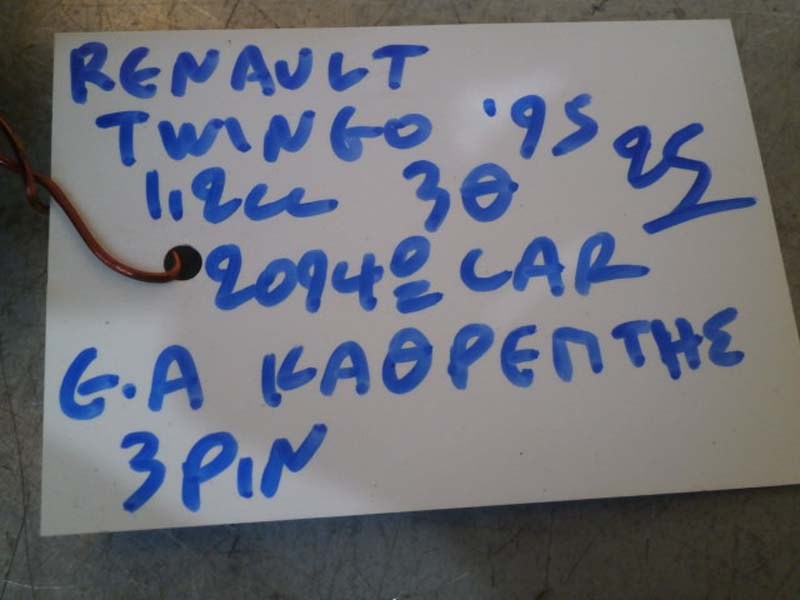 RENAULT
TWINGO '95 25
1.2cc 3Θ
2094º CAR
E.A ΚΑΘΡΕΠΤΗΣ
3 PIN